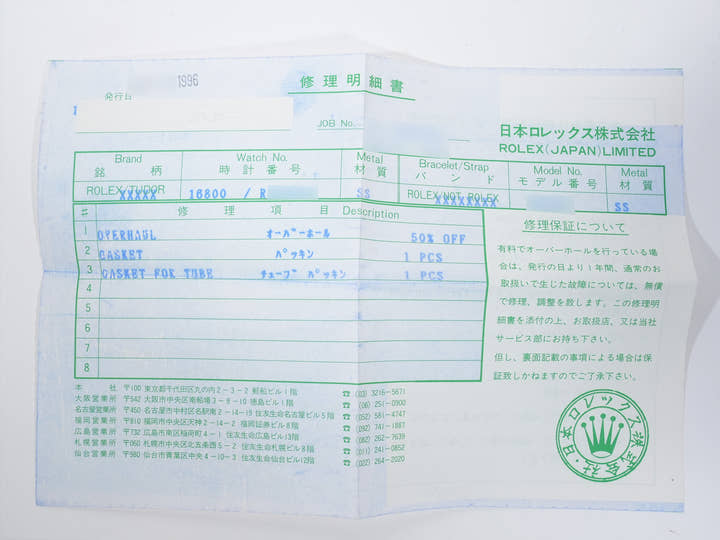 1996
修理明細書
発行日
JOB No.
日本ロレックス株式会社
ROLEX(JAPAN)LIMITED
Brand Watch No. Metal Bracelet/Strap Model No. Metal
銘柄 時計番号 材質 バンド モデル番号 材質
ROLEX/TUDOR 16800 / R SS ROLEX/NOT ROLEX SS
XXXXX XXXXXXXX
# 修理項目 Description
1 OVERHAUL オーバーホール 50% OFF
2 GASKET パッキン 1 PCS
3 GASKET FOR TUBE チューブ パッキン 1 PCS
4
5
6
7
8
修理保証について
有料でオーバーホールを行っている場
合は、発行の日より1年間、通常のお
取扱いで生じた故障については、無償
で修理、調整を致します。この修理明
細書を添付の上、お取扱店、又は当社
サービス部にお持ち下さい。
但し、裏面記載の事項による場合は保
証致しかねますのでご了承下さい。
本社 〒100 東京都千代田区丸の内2-3-2 郵船ビル1階 ☎ (03) 3216-5671
大阪営業所 〒542 大阪市中央区南船場3-9-10 徳島ビル1階 ☎ (06) 251-0900
名古屋営業所 〒450 名古屋市中村区名駅南2-14-19 住友生命名古屋ビル5階 ☎ (052) 581-4747
福岡営業所 〒810 福岡市中央区天神2-14-2 福岡証券ビル8階 ☎ (092) 741-1887
広島営業所 〒732 広島市南区稲荷町4-1 住友生命広島ビル13階 ☎ (082) 262-7639
札幌営業所 〒060 札幌市中央区北五条西5-2 住友生命札幌ビル8階 ☎ (011) 241-0852
仙台営業所 〒980 仙台市青葉区中央4-10-3 住友生命仙台ビル12階 ☎ (022) 264-2020
日本ロレックス株式会社・